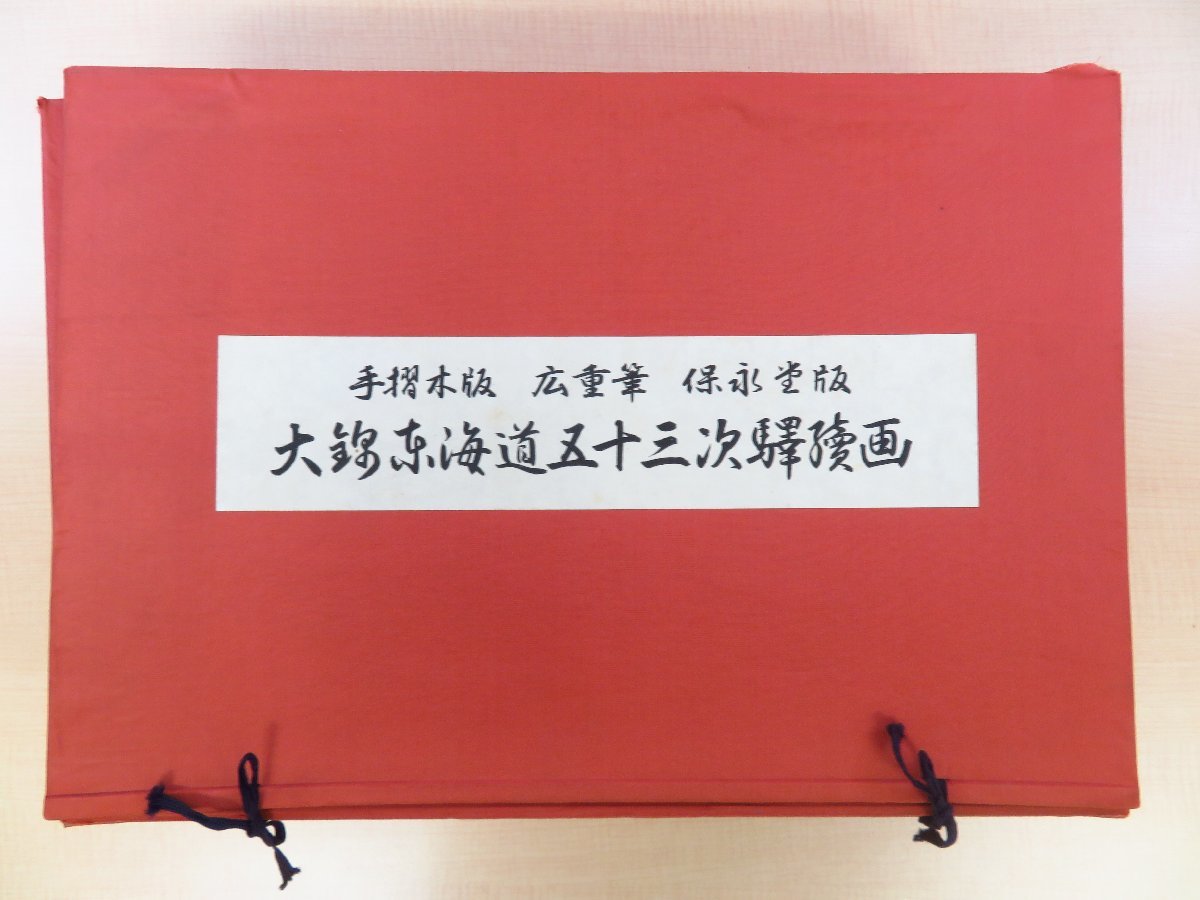 手摺木版 広重筆 保永堂版
大錦東海道五十三次驛續画